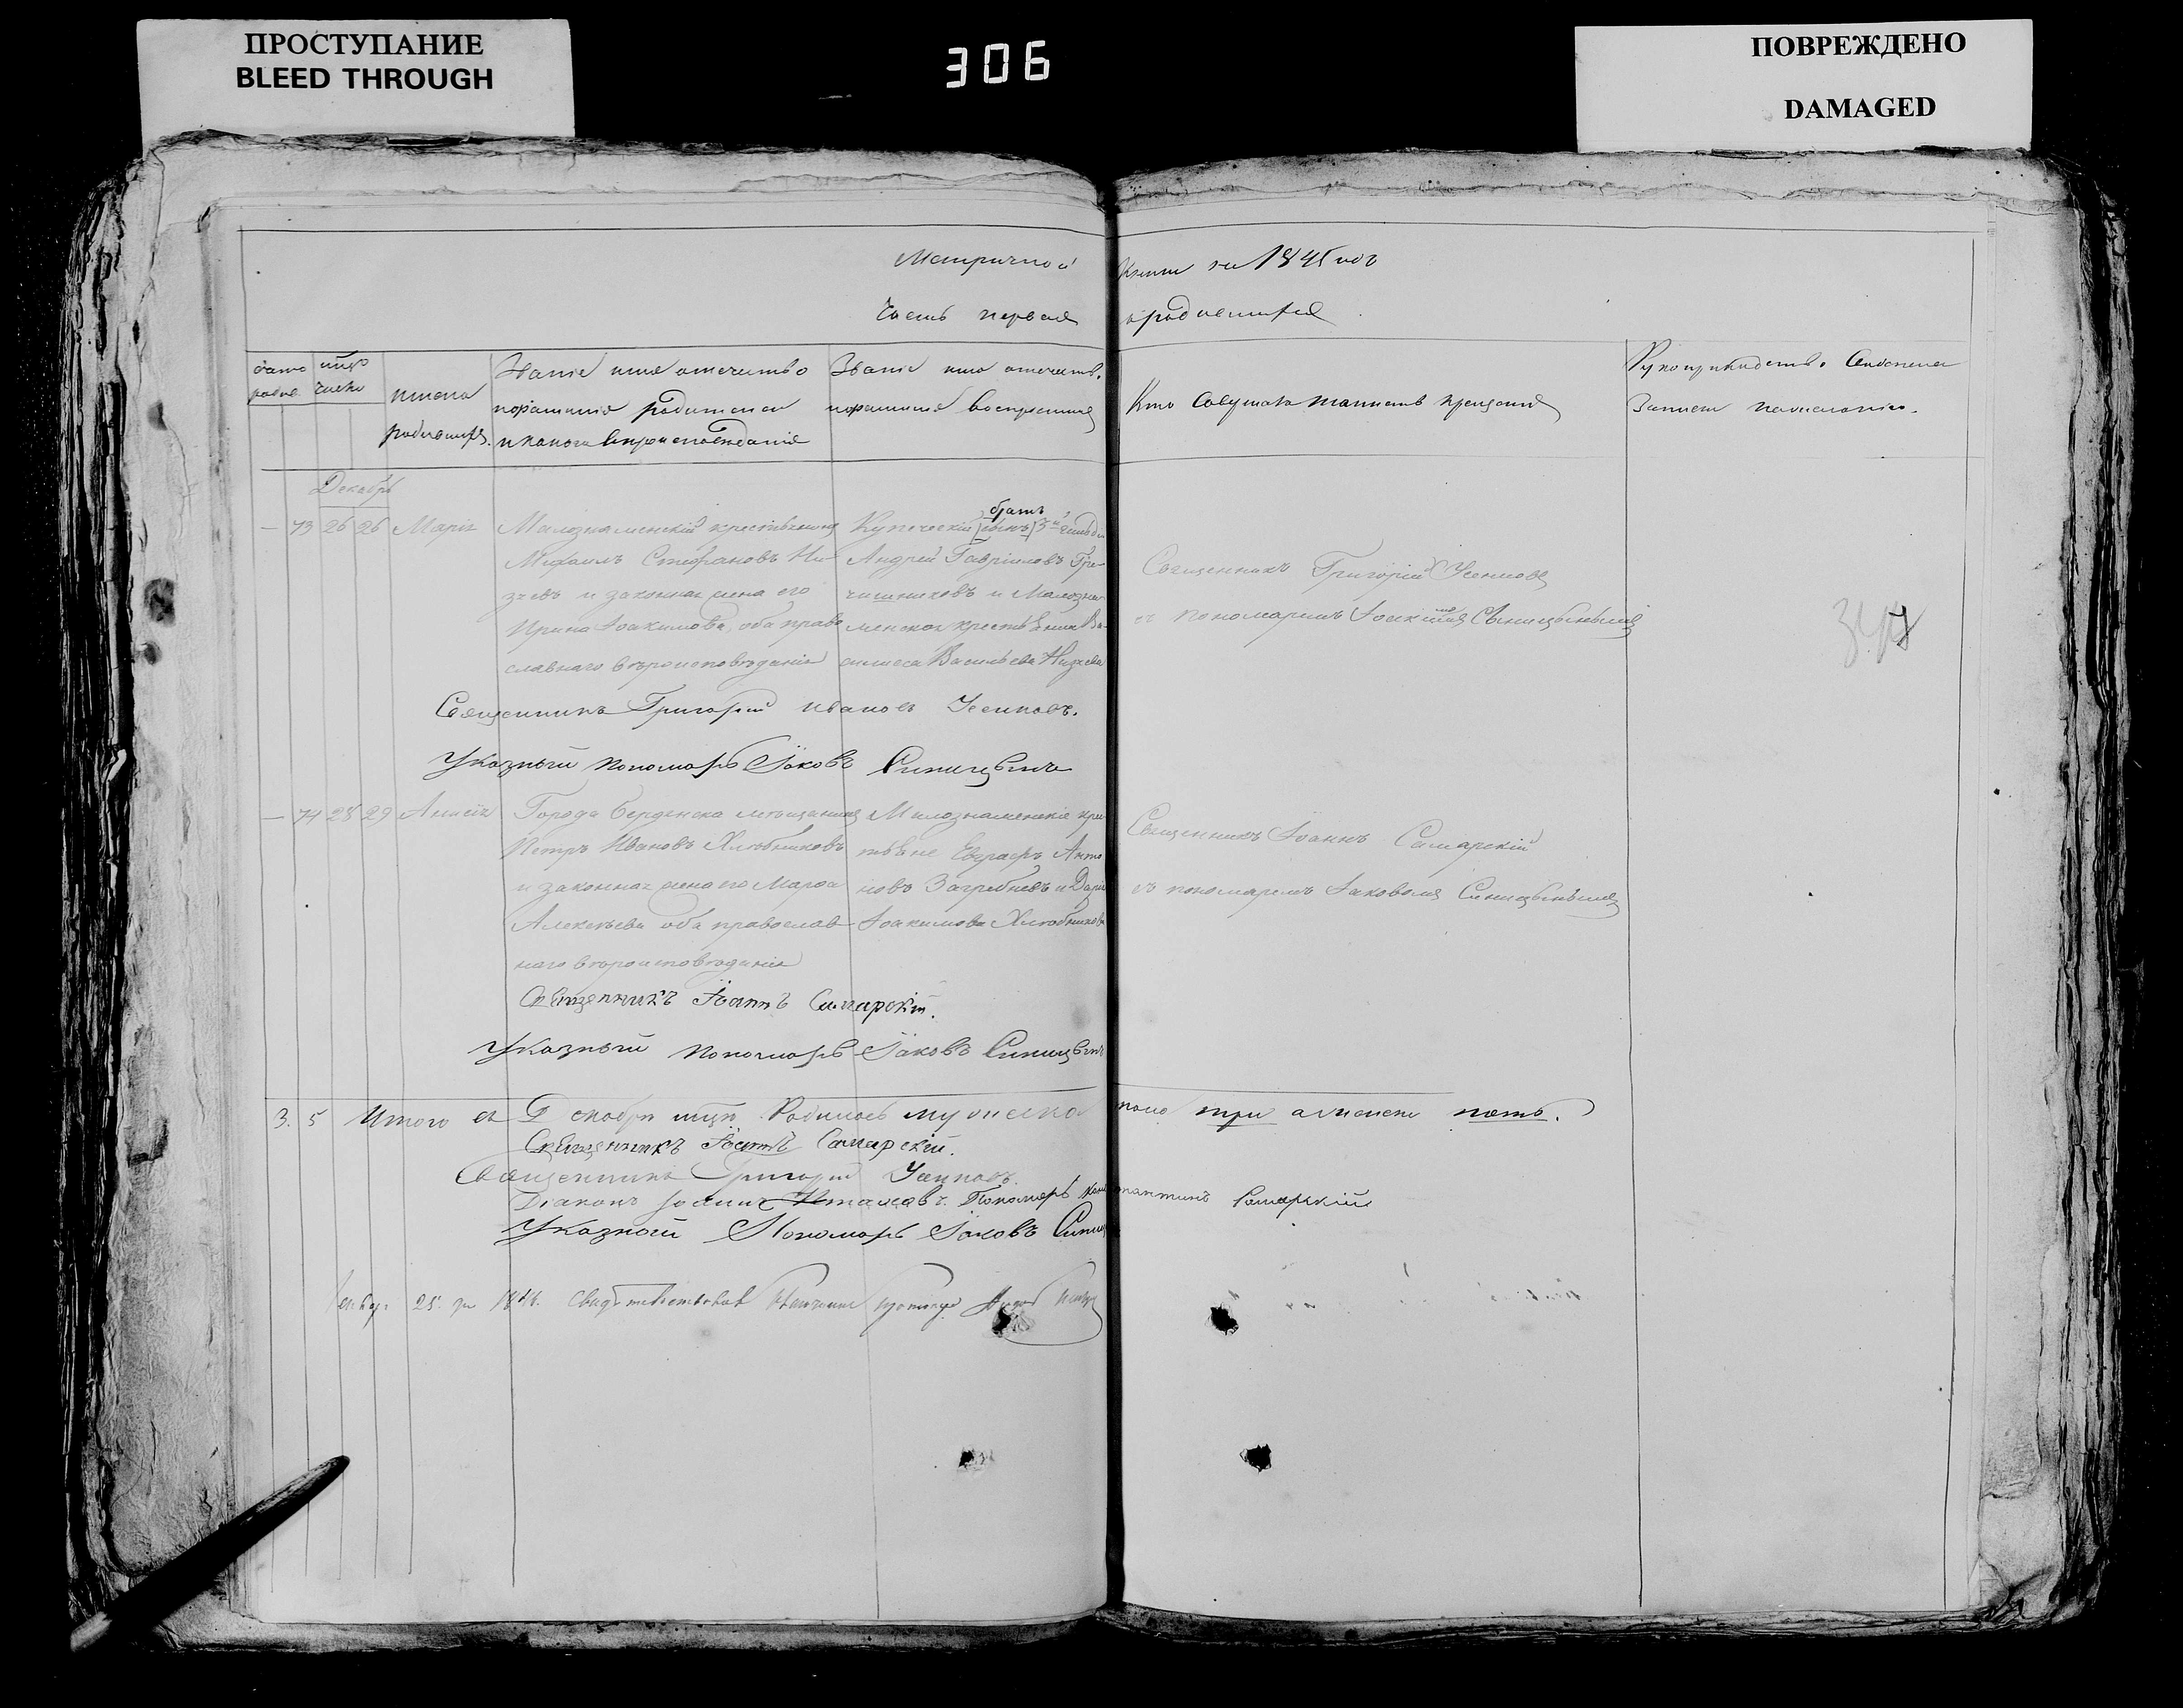 ПРОСТУПАНИЕ
BLEED THROUGH
306
ПОВРЕЖДЕНО
DAMAGED
Метричной книги на 1845 годъ
Часть первая о родившихся
имена родившихся
Званіе имя отечество
и фамилія родителей
и какого вѣроисповѣданія
Званіе имя отечеств.
и фамилія воспріемник
Кто совершалъ таинство крещенія
Рукоприкладств. свидетелей
записи по желанію.
Декабрь
73 26 26 Марія
Малознаменскій крестьянинъ
Михаилъ Стефановъ Ни-
зчевъ и законная жена его
Ирина Іоакимова, оба право
славнаго вѣроисповѣданія
братъ
Купеческій сынъ 3й гильди
Андрей Гавріиловъ Гре-
чишниковъ и Малозна-
менская крестьянка Ва-
силиса Васильева Низчева
Священникъ Григорій Усенковъ
съ пономаремъ Синицынымъ
Священникъ Григорій Ивановъ Усенковъ.
Указный пономарь Іаковъ Синицынъ
74 28 29 Анисія
Города Бердянска мѣщанинъ
Петръ Ивановъ Хлѣбниковъ
и законная жена его Марѳа
Алексѣева оба православ-
наго вѣроисповѣданія
Малознаменскіе крес
тьяне Евграфъ Анто
новъ Загребневъ и Дарія
Іоакимова Хлѣбникова
Священникъ Іоаннъ Самарскій
съ пономаремъ Іаковомъ Синицынымъ
Священникъ Іоаннъ Самарскій.
Указный пономарь Іаковъ Синицынъ
3. 5 Итого въ Декабрѣ мцѣ Родилось мужеска пола три а женска пять.
Священникъ Іоаннъ Самарскій.
Священникъ Григорій Усенковъ.
Діаконъ Іоаннъ Пономарь Константинъ Самарскій
Указный Пономарь Іаковъ Синиц
25. 1846. свидѣтельствовалъ